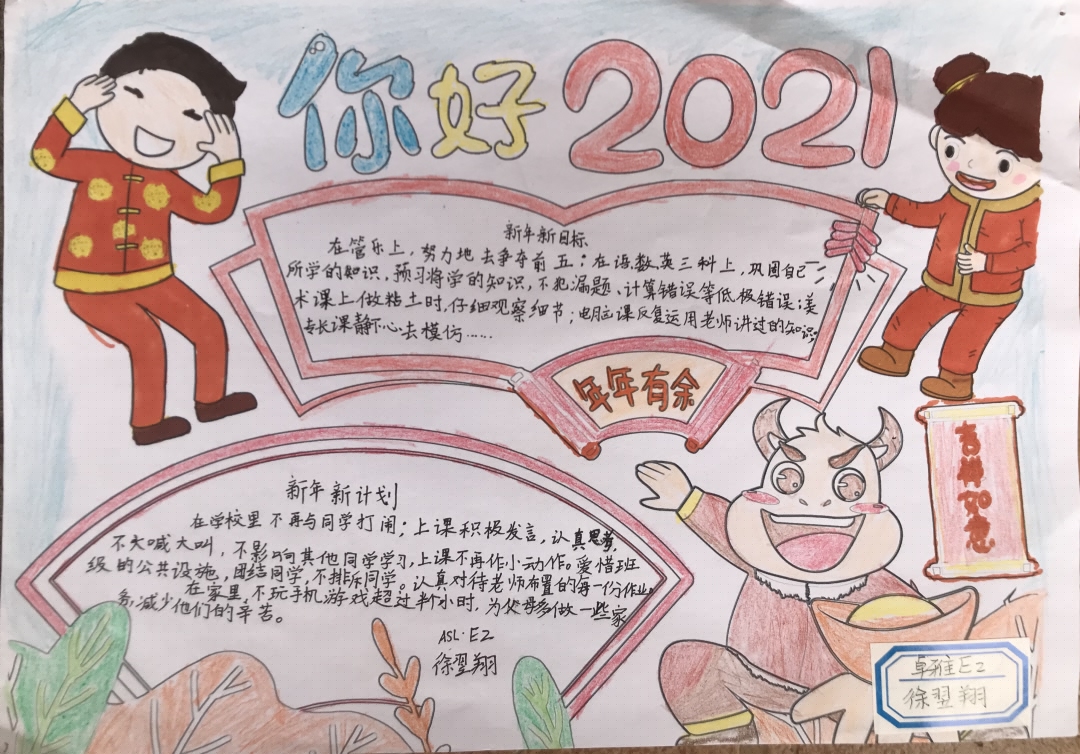 你好2021
新年新目标
在管乐上，努力地去争夺前五；在语数英三科上，巩固自己
所学的知识，预习将学的知识，不犯漏题、计算错误等低极错误；美
术课上做粘土时，仔细观察细节；电脑课反复运用老师讲过的知识；
专长课静下心去模仿……
年年有余
吉祥如意
新年新计划
在学校里不再与同学打闹；上课积极发言，认真思考，
不大喊大叫，不影响其他同学学习，上课不再作小动作。爱惜班
级的公共设施，团结同学，不排斥同学。认真对待老师布置的每一份作业。
在家里，不玩手机游戏超过半小时，为父母多做一些家
务，减少他们的辛苦。
ASL·E2
徐翌翔
卓雅E2
徐翌翔